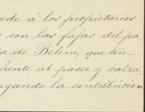 cede á los propietarios
con las fajas del pa
a de Belem, que tien
frente al paseo y calza
agando la contribucion